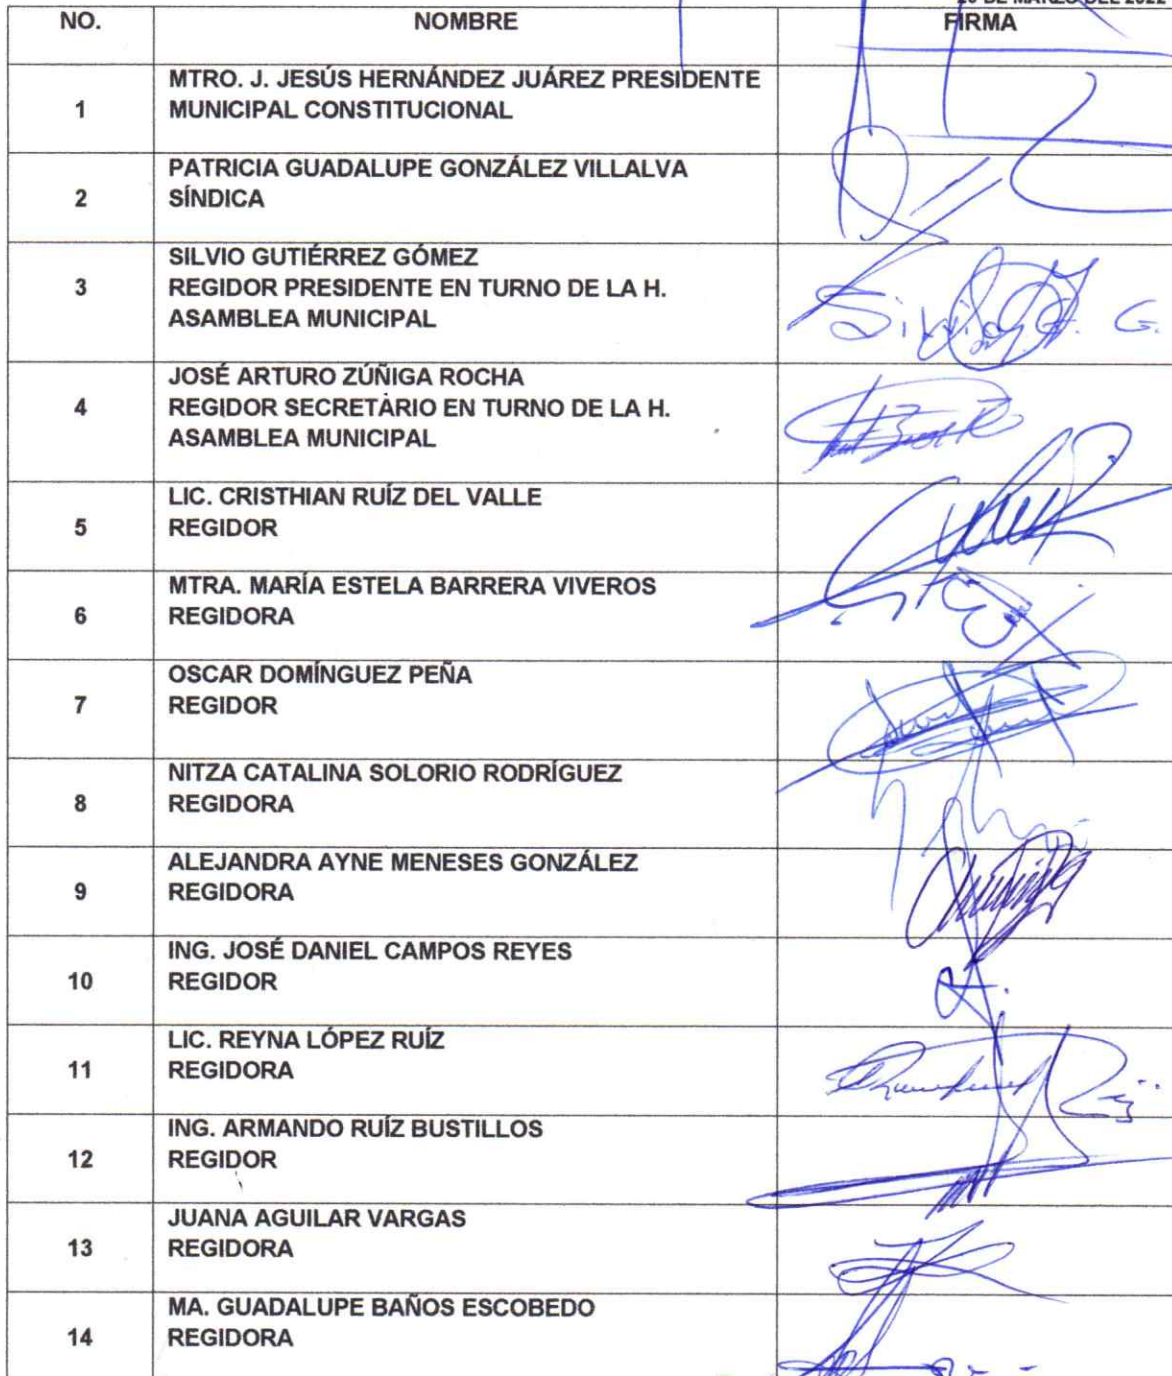 DE MARZO DEL 2022
NO. NOMBRE FIRMA
MTRO. J. JESÚS HERNÁNDEZ JUÁREZ PRESIDENTE
1 MUNICIPAL CONSTITUCIONAL
PATRICIA GUADALUPE GONZÁLEZ VILLALVA
2 SÍNDICA
SILVIO GUTIÉRREZ GÓMEZ
3 REGIDOR PRESIDENTE EN TURNO DE LA H.
ASAMBLEA MUNICIPAL
JOSÉ ARTURO ZÚÑIGA ROCHA
4 REGIDOR SECRETARIO EN TURNO DE LA H.
ASAMBLEA MUNICIPAL
LIC. CRISTHIAN RUÍZ DEL VALLE
5 REGIDOR
MTRA. MARÍA ESTELA BARRERA VIVEROS
6 REGIDORA
OSCAR DOMÍNGUEZ PEÑA
7 REGIDOR
NITZA CATALINA SOLORIO RODRÍGUEZ
8 REGIDORA
ALEJANDRA AYNE MENESES GONZÁLEZ
9 REGIDORA
ING. JOSÉ DANIEL CAMPOS REYES
10 REGIDOR
LIC. REYNA LÓPEZ RUÍZ
11 REGIDORA
ING. ARMANDO RUÍZ BUSTILLOS
12 REGIDOR
JUANA AGUILAR VARGAS
13 REGIDORA
MA. GUADALUPE BAÑOS ESCOBEDO
14 REGIDORA